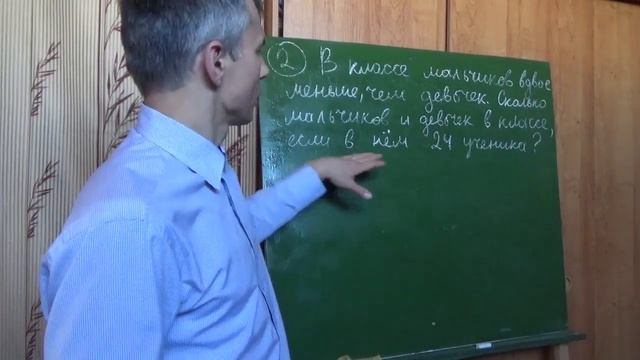 2 В классе мальчиков вдвое
меньше, чем девочек. Сколько
мальчиков и девочек в классе,
если в нём 24 ученика?